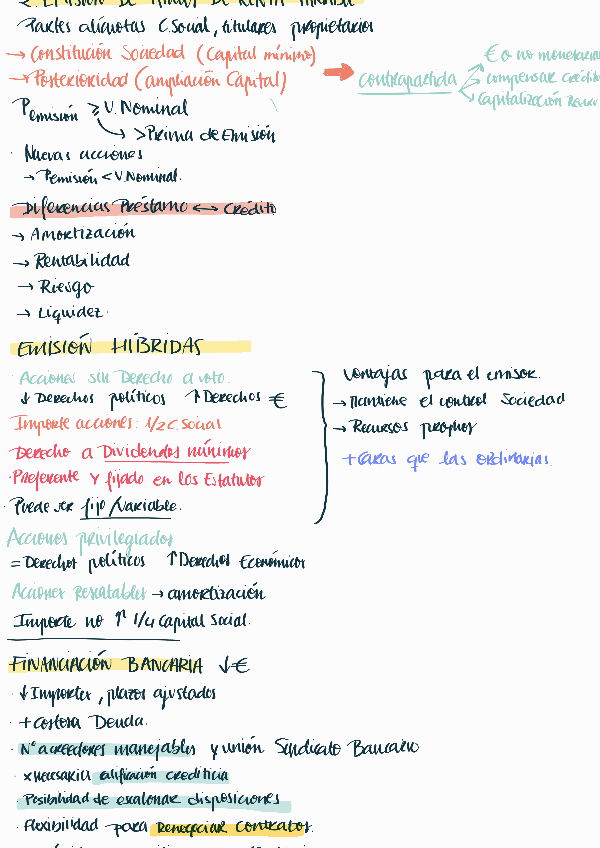 2 EMISIÓN DE TÍTULOS DE RENTA VARIABLE
Partes alícuotas C.Social, titulares propietarios
→ Constitución Sociedad (Capital mínimo)
→ Posterioridad (ampliación Capital)
→ contrapartida
€ o no monetarias
compensar crédito
Capitalización
P emisión ≥ V. Nominal
→ > Prima de Emisión
· Nuevas acciones
→ P emisión < V. Nominal.
Diferencias Préstamo ↔ Crédito
→ Amortización
→ Rentabilidad
→ Riesgo
→ Liquidez
EMISIÓN HÍBRIDAS
· Acciones sin Derecho a voto.
↓ Derechos políticos ↑ Derechos €
Importe acciones: 1/2 C. Social
Derecho a Dividendos mínimos
· Preferente y fijado en los Estatutos
· Puede ser fijo/Variable.
Ventajas para el emisor.
→ Mantiene el control Sociedad
→ Recursos propios
+ Caras que las ordinarias.
Acciones privilegiados
= Derechos políticos ↑ Derechos Económicos
Acciones Rescatables → amortización
Importe no ↑ 1/4 Capital Social.
FINANCIACIÓN BANCARIA ↓ €
· ↓ Importes, plazos ajustados
· + costosa Deuda.
· Nº acreedores manejables y unión Sindicato Bancario
· x necesaria calificación crediticia
· Posibilidad de escalonar disposiciones
· Flexibilidad para Renegociar contratos.